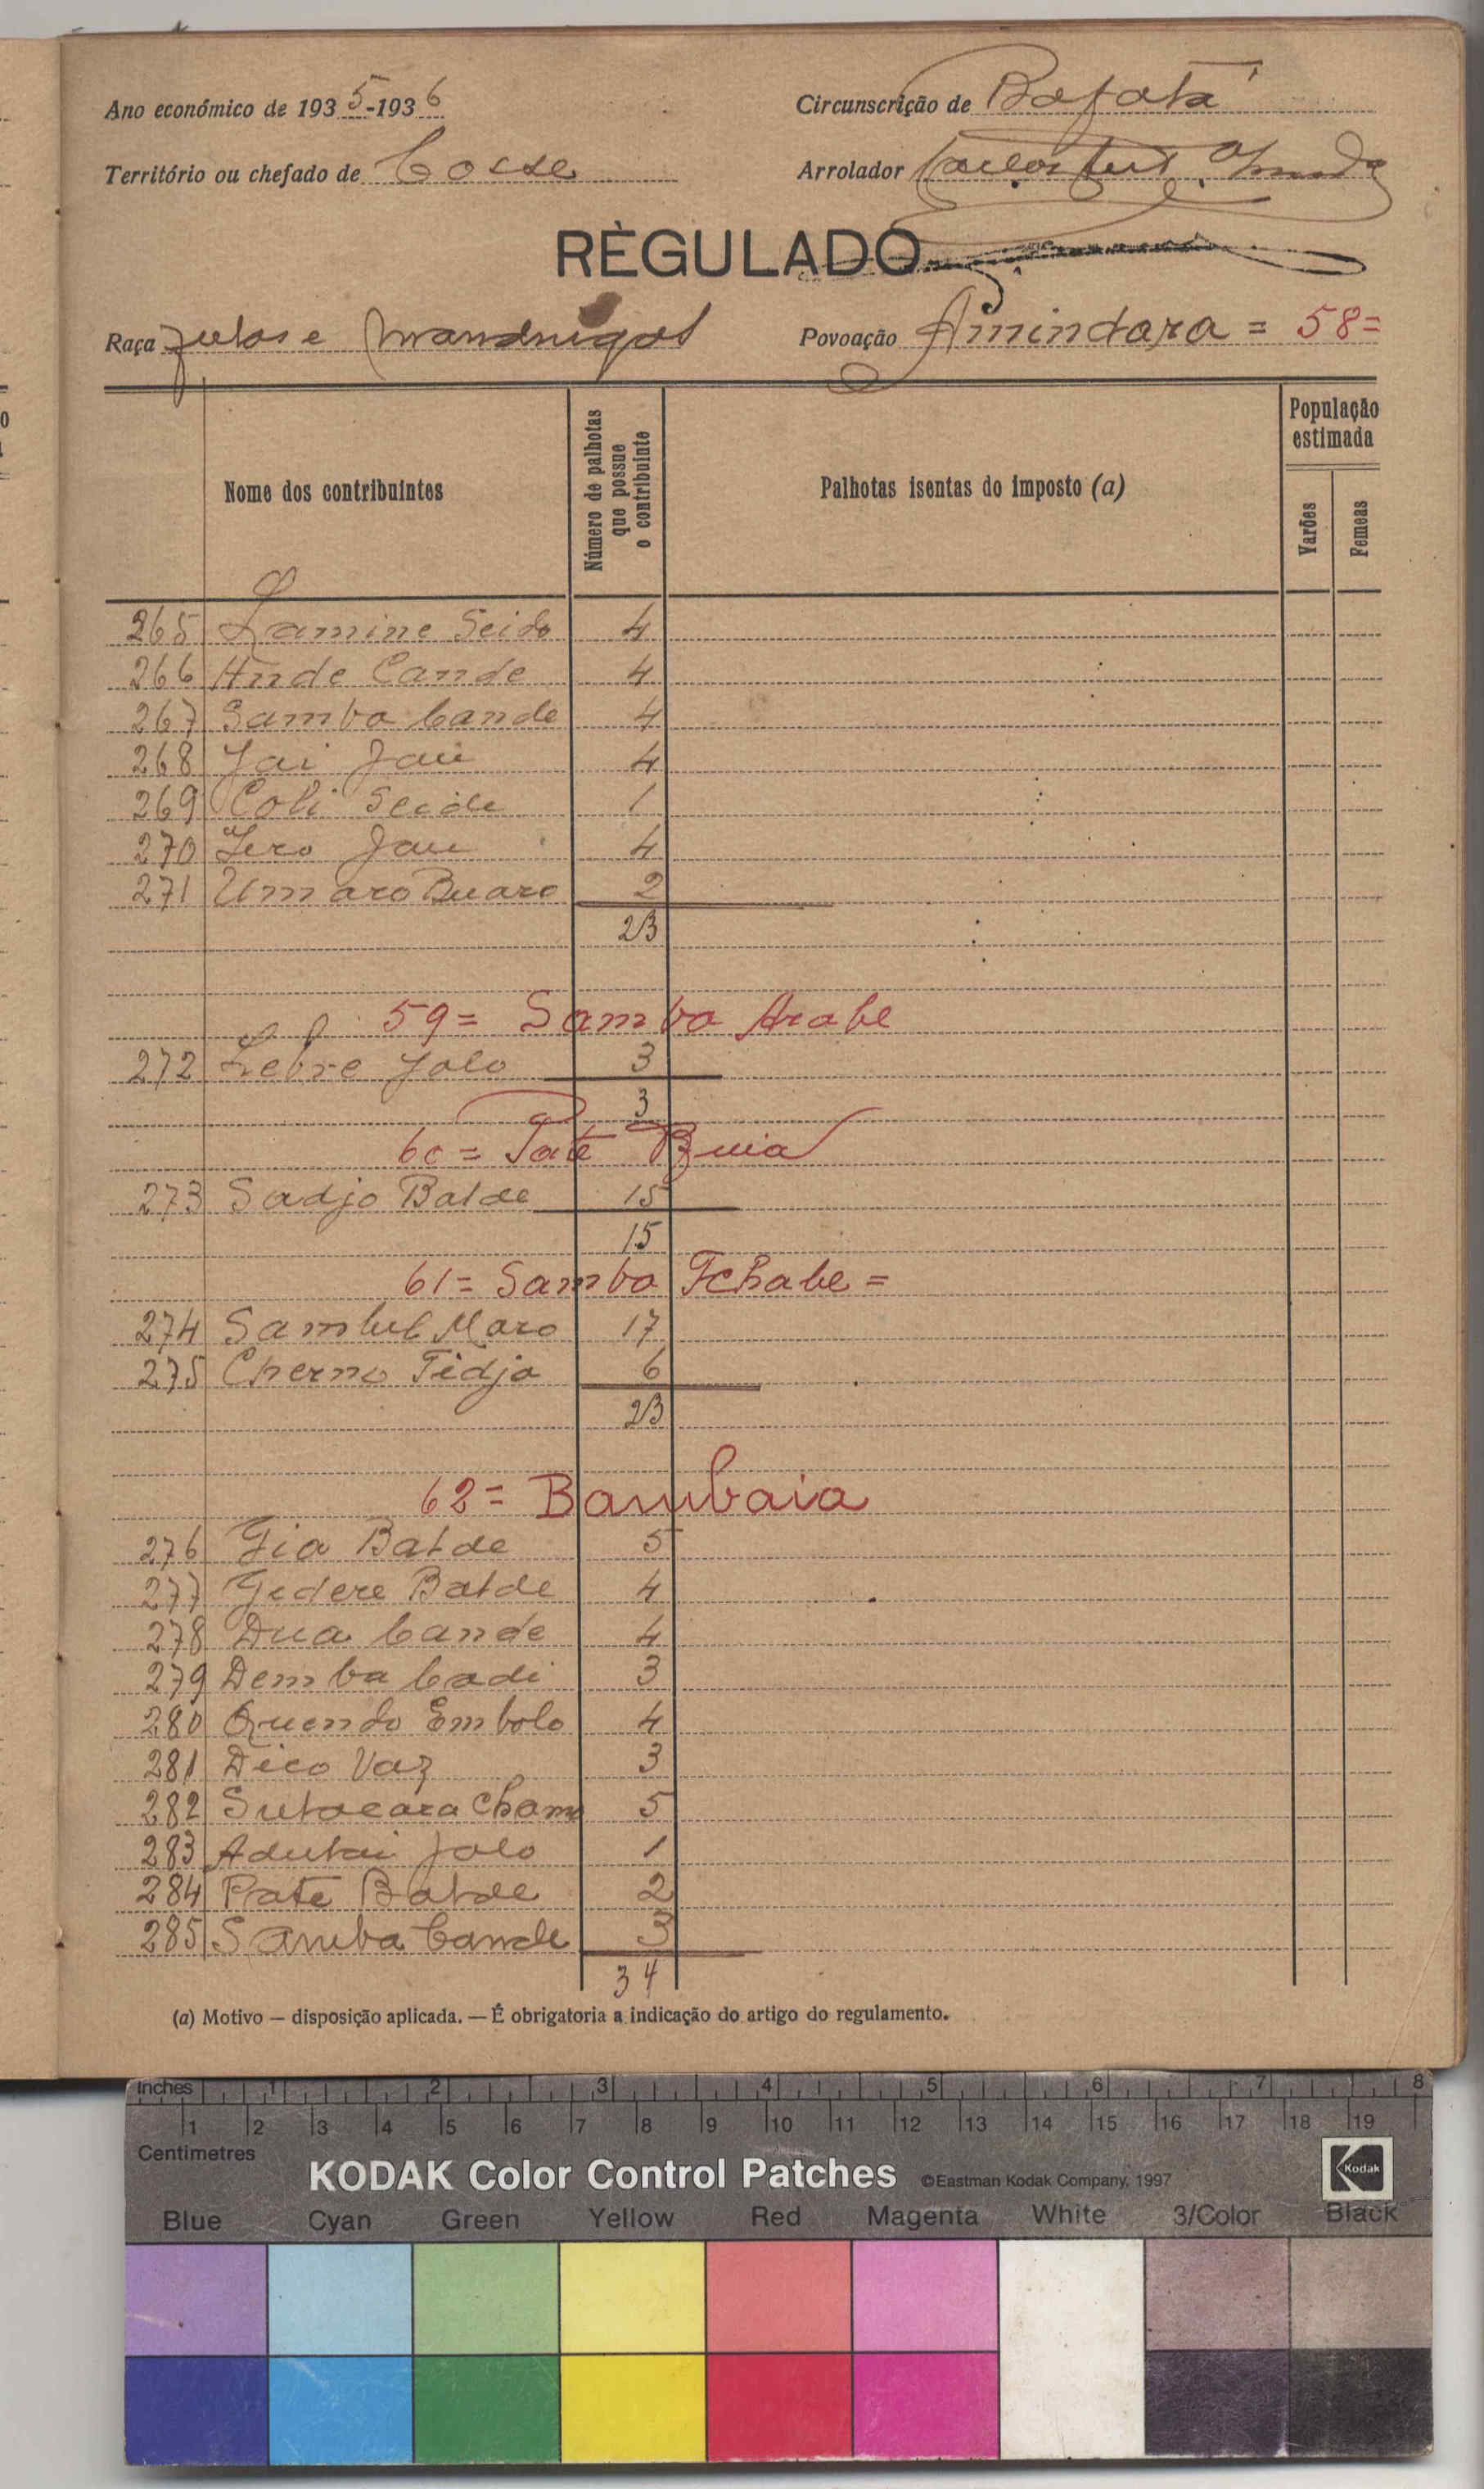 Ano económico de 1935-1936
Circunscrição de Bafatá
Território ou chefado de Cosse
Arrolador
REGULADO
Raça fulas e mandingas
Povoação Amindara = 58=
Nome dos contribuintes
Número de palhotas que possue o contribuinte
Palhotas isentas do imposto (a)
População estimada
Varões
Femeas
265 Lamine Seido 4
266 Ande Cande 4
267 Samba Cande 4
268 Jai Jau 4
269 Coli Seide 1
270 Jero Jau 4
271 Umaro Buaro 2
23
59= Samba Arabe
272 Lebre Jalo 3
3
60= Pate Buia
273 Sadjo Balde 15
15
61= Samba Tchabe=
274 Sambel Maro 17
275 Cherno Tidja 6
23
62= Bambaia
276 Gia Balde 5
277 Gedere Balde 4
278 Dua Cande 4
279 Demba Cadi 3
280 Quendo Embalo 4
281 Dico Vaz 3
282 Sutacara Cham 5
283 Adulai Jalo 1
284 Pate Balde 2
285 Samba Cande 3
34
(a) Motivo — disposição aplicada. — É obrigatoria a indicação do artigo do regulamento.
Inches 1 2 3 4 5 6 7 8
1 2 3 4 5 6 7 8 9 10 11 12 13 14 15 16 17 18 19
Centimetres
KODAK Color Control Patches ©Eastman Kodak Company, 1997 Kodak
Blue Cyan Green Yellow Red Magenta White 3/Color Black